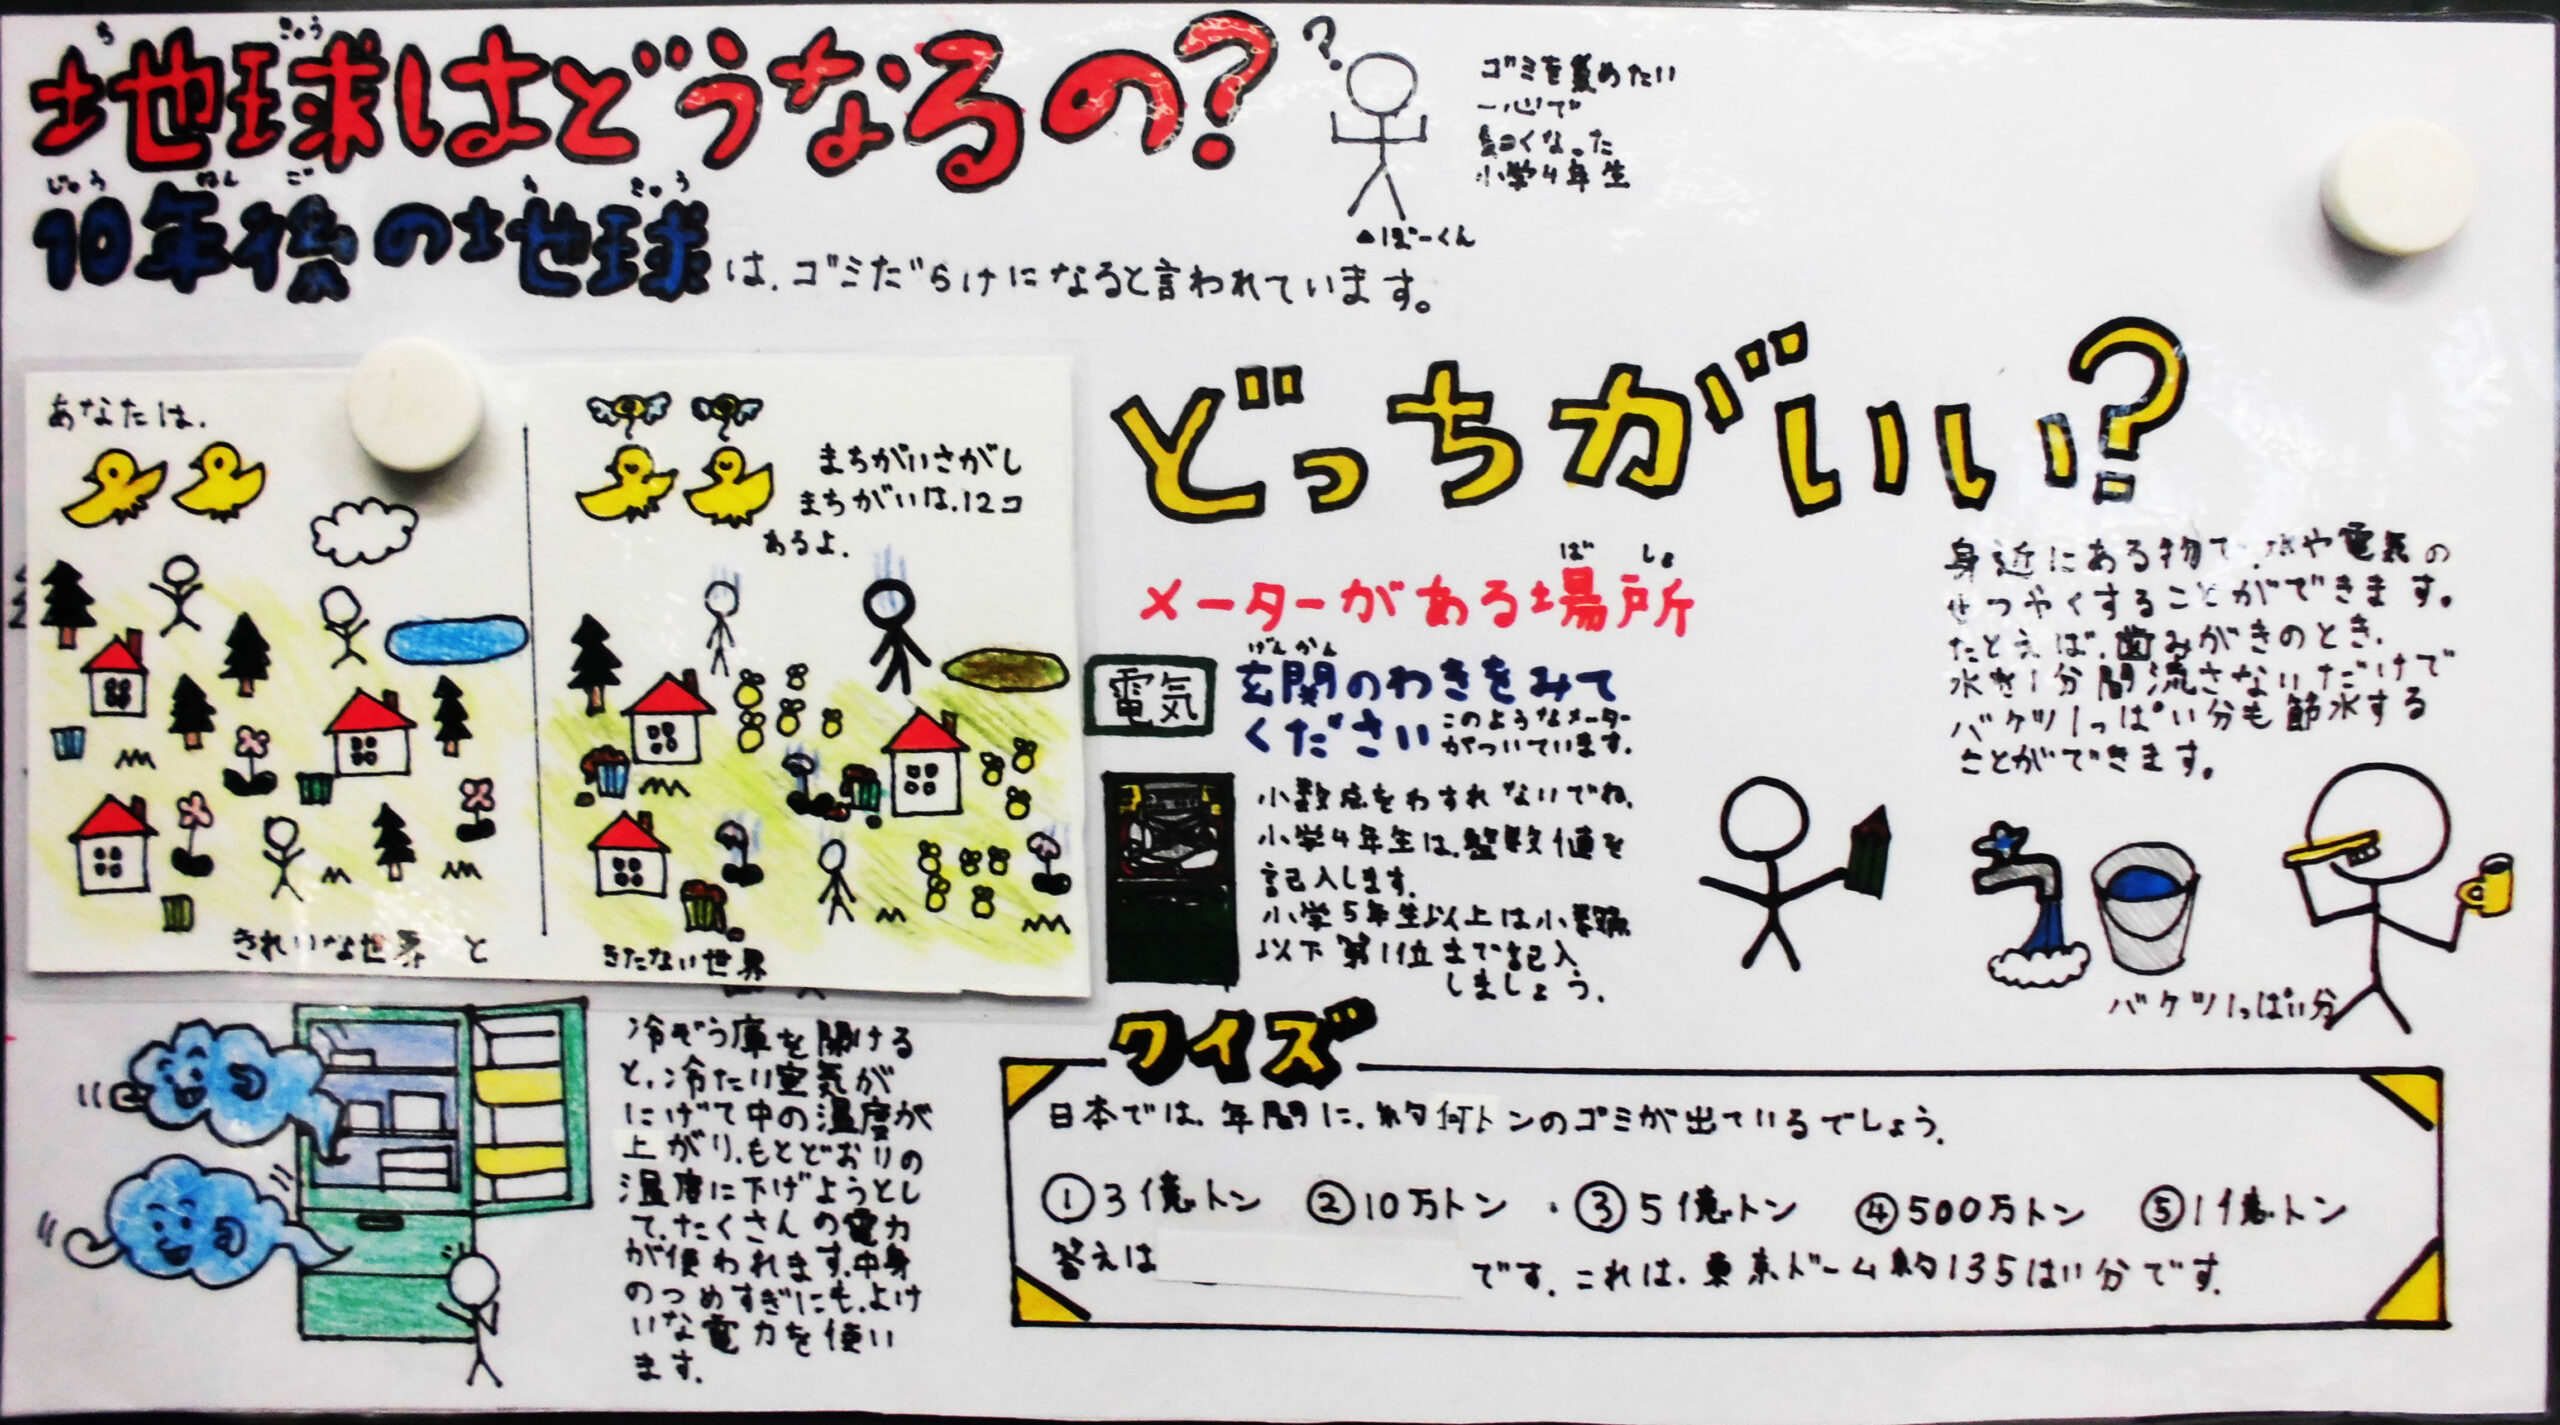 地球はどうなるの?
ち きゅう
ゴミを集めたい
一心で
細くなった
小学4年生
▲ばーくん
じゅう ねん ご ち きゅう
10年後の地球は、ゴミだらけになると言われています。
あなたは、
きれいな世界 と
まちがいさがし
まちがいは、12コ
あるよ、
きたない世界
どっちがいい?
ば しょ
メーターがある場所
電気
げん かん
玄関のわきをみて
ください
このようなメーター
がついています。
小数点をわすれないでね、
小学4年生は、整数値を
記入します。
小学5年生以上は小数点
以下第1位まで記入
しましょう。
身近にある物で、水や電気の
せつやくすることができます。
たとえば、歯みがきのとき、
水を1分間流さないだけで
バケツ1っぱい分も節水する
ことができます。
バケツ1っぱい分
冷ぞう庫を開ける
と、冷たい空気が
にげて中の温度が
上がり、もとどおりの
温度に下げようとし
て、たくさんの電力
が使われます。中身
のつめすぎにも、よけ
いな電力を使い
ます。
クイズ
日本では、年間に、約何トンのゴミが出ているでしょう。
①3億トン ②10万トン ・③5億トン ④500万トン ⑤1億トン
答えは
です、これは、東京ドーム約135はい分です。